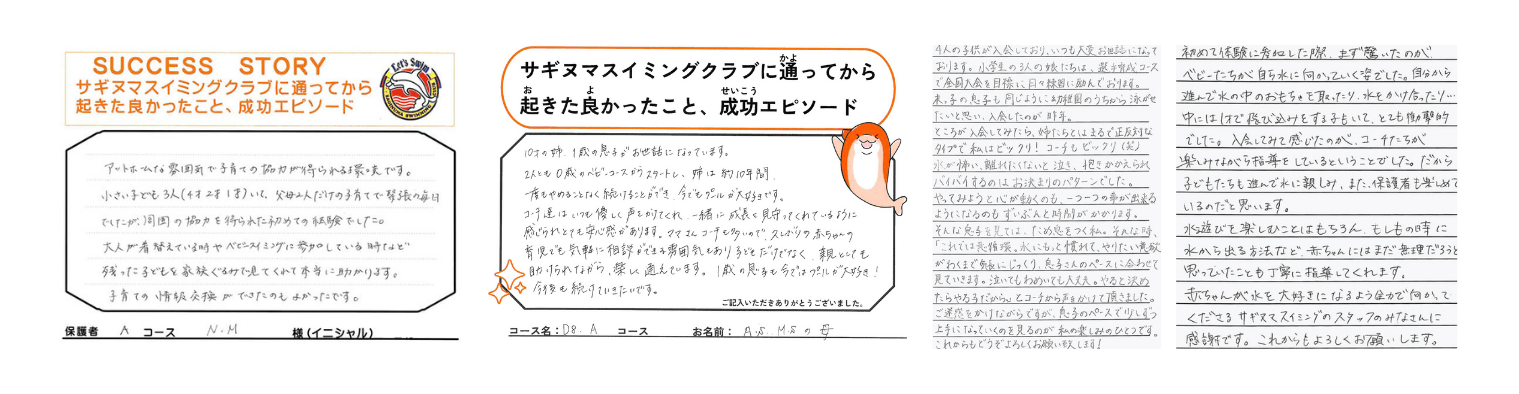 SUCCESS STORY
サギヌマスイミングクラブに通ってから
起きた良かったこと、成功エピソード
Let's Swim
アットホームな雰囲気で子育ての協力が得られる環境です。
小さい子ども3人(4才2才1才)いて、父母2人だけの子育てで緊張の毎日
でしたが、周囲の協力を得られた初めての経験でした。
大人が着替えている時やベビースイミングに参加している時など
残った子どもを家族ぐるみで見てくれて本当に助かります。
子育ての情報交換ができたのもよかったです。
保護者 A コース N.M 様(イニシャル)
サギヌマスイミングクラブに通ってから
かよ
起きた良かったこと、成功エピソード
お よ せいこう
10才の姉、1歳の息子がお世話になっています。
2人とも0歳のベビーコースからスタートし、姉は約10年間
一度もやめることなく続けることができ、今でもプールが大好きです。
コーチ達はいつも優しく声をかけてくれ、一緒に成長を見守ってくれているように
感じられとても安心感があります。ママさんコーチも多いので、久しぶりの赤ちゃんの
育児でも気軽に相談ができる雰囲気もあり子どもだけでなく、親としても
助けられながら、楽しく通えています。1歳の息子も今ではプールが大好き!
今後も続けていきたいです。
ご記入いただきありがとうございました。
コース名:D8.A コース お名前: A.S. M.Sの母
4人の子供が入会しており、いつも大変お世話になって
おります。小学生の3人の娘たちは、選手育成コース
で全国大会を目標に日々練習に励んでおります。
末っ子の息子も同じように幼稚園のうちから泳がせ
たいと思い、入会したのが昨年。
ところが入会してみたら、姉たちとはまるで正反対な
タイプで私はビックリ!コーチもビックリ(笑)
水が怖い、離れたくないと泣き、抱きかかえられ
バイバイするのはお決まりのパターンでした。
やってみようと心が動くのも、一つ一つの事が出来る
ようになるのもずいぶんと時間がかかります。
そんな息子を見ては、ため息をつく私。そんな時、
「これでは悪循環。水にもっと慣れて、やりたい意欲
がわくまで気長にじっくり、息子さんのペースに合わせて
見ていきます。泣いてもわめいても大丈夫。やると決め
たらやる子だから。」とコーチから声をかけて頂きました。
ご迷惑をかけながらですが、息子のペースで少しずつ
上手になっていくのを見るのが私の楽しみのひとつです。
これからもどうぞよろしくお願い致します!
初めて体験に参加した際、まず驚いたのが
ベビーたちが自ら水に向かっていく姿でした。自分から
進んで水の中のおもちゃを取ったり、水をかけ合ったり…
中には1才で飛び込みをする子もいて、とても衝撃的
でした。入会してみて感じたのが、コーチたちが
楽しみながら指導をしているということでした。だから
子どもたちも進んで水に親しみ、また、保護者も楽しめて
いるのだと思います。
水遊びを楽しむことはもちろん、もしもの時に
水から出る方法など、赤ちゃんにはまだ無理だろうと
思っていたことも丁寧に指導してくれます。
赤ちゃんが水を大好きになるよう全力で向かって
くださるサギヌマスイミングのスタッフのみなさんに
感謝です。これからもよろしくお願いします。